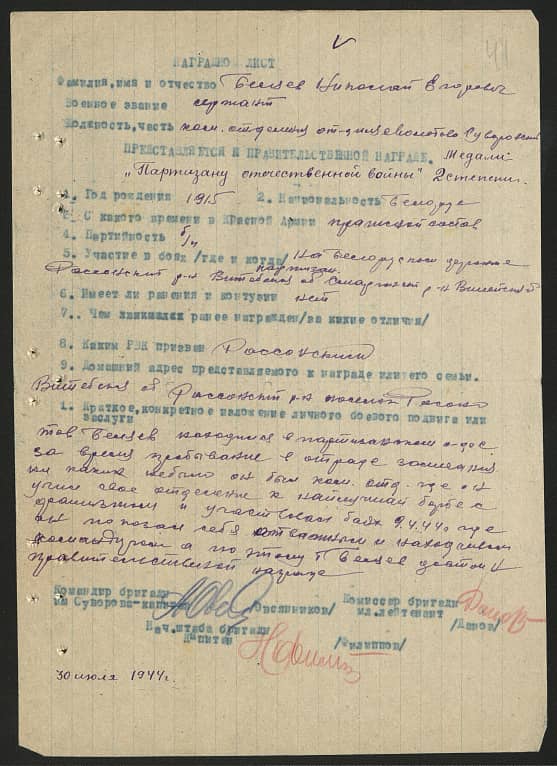 41
НАГРАДНОЙ ЛИСТ
Фамилия,имя и отчество Бенцев Николай Егорович
Военное звание сержант
Должность,часть ком. отделения Суворова
ПРЕДСТАВЛЯЕТСЯ К ПРАВИТЕЛЬСТВЕННОЙ НАГРАДЕ. Медали
„Партизану отечественной войны" 2 степени.
1. Год рождения 1915 2. Национальность белорус
3. С какого времени в Красной Армии состав
4. Партийность б/п
5. Участие в боях /где и когда/ На Белоруской
партизан.
Россонский р-н Витебская об. р-н
6. Имеет ли ранения и контузии нет
7. Чем ранее награжден/за какие отличия/
8. Каким РВК призван Россонский
9. Домашний адрес представляемого к награде или его семьи.
Витебская об Россонский р-н
1. Краткое,конкретное изложение личного боевого подвига или
заслуги
тов Бенцев находился в партизанском отряде
за время пребывание в отряде
ни каких небыло он был ком. отд. где он
учил свое отделение к наилучшей борьбе с
и участвовал боях 9.4.44г где
он показал себя отважным и находчивым
командиром а по этому т Бенцев достоин
правительственной награде
Командир бригады
им Суворова-капитан /Овсянников/
Комиссар бригады
мл.лейтенант /Данов/
Нач.штаба бригады
Капитан /Филиппов/
30 июля 1944г.